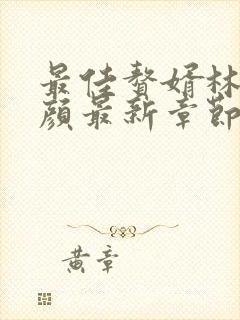 最佳赘婿林
颜最新章节
黄章